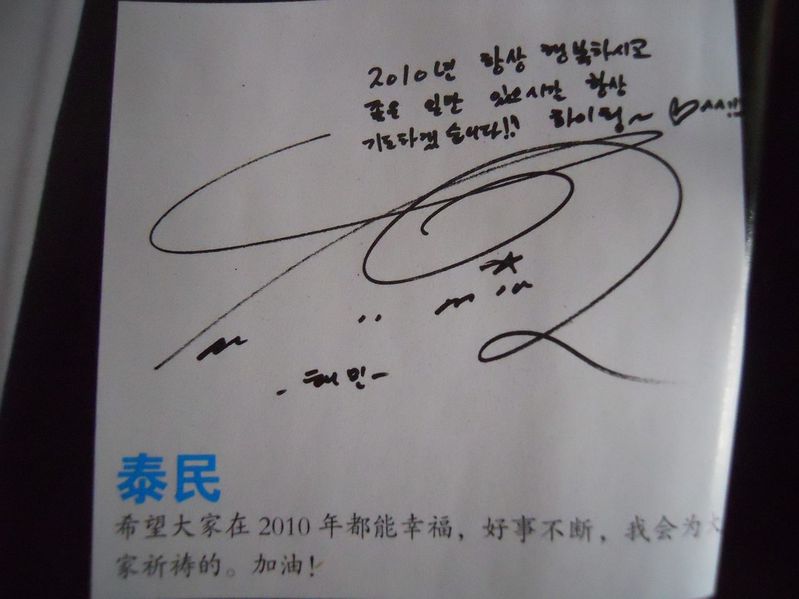 2010년 항상 행복하시고
좋은 일만 있으시길 항상
기도하겠습니다!! 화이팅~ ♡^^!!!
-태민-
泰民
希望大家在 2010 年都能幸福，好事不断，我会为大
家祈祷的。加油！